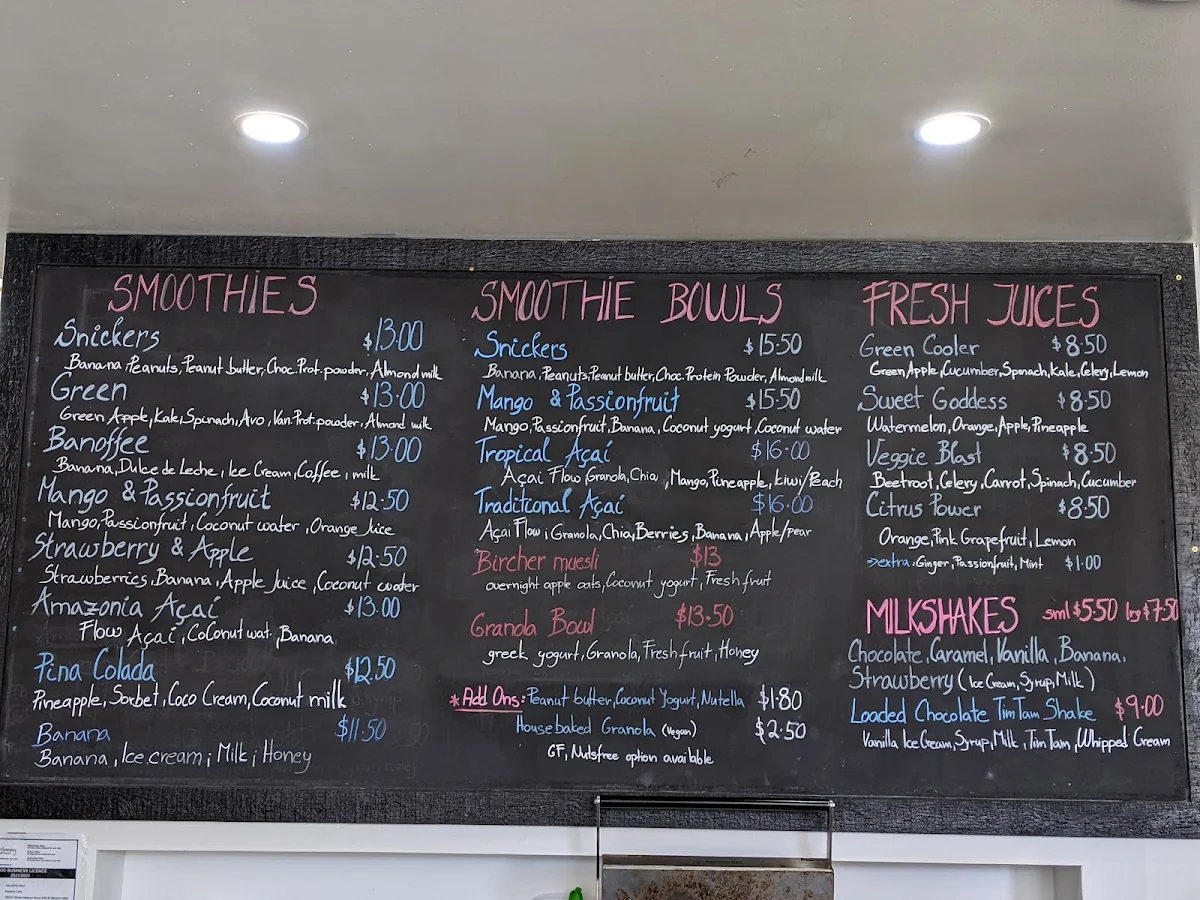 SMOOTHIES
Snickers $13.00
Banana, Peanuts, Peanut butter, Choc. Prot. powder, Almond milk
Green $13.00
Green Apple, Kale, Spinach, Avo, Van. Prot. powder, Almond milk
Banoffee $13.00
Banana, Dulce de Leche, Ice Cream, Coffee, milk
Mango & Passionfruit $12.50
Mango, Passionfruit, Coconut water, Orange Juice
Strawberry & Apple $12.50
Strawberries, Banana, Apple Juice, Coconut water
Amazonia Açaí $13.00
Flow Açaí, Coconut wat., Banana
Pina Colada $12.50
Pineapple, Sorbet, Coco Cream, Coconut milk
Banana $11.50
Banana, Ice cream, Milk, Honey
SMOOTHIE BOWLS
Snickers $15.50
Banana, Peanuts, Peanut butter, Choc. Protein Powder, Almond milk
Mango & Passionfruit $15.50
Mango, Passionfruit, Banana, Coconut yogurt, Coconut water
Tropical Açaí $16.00
Açaí Flow, Granola, Chia, Mango, Pineapple, kiwi/Peach
Traditional Açaí $16.00
Açaí Flow, Granola, Chia, Berries, Banana, Apple/pear
Bircher muesli $13
overnight apple oats, Coconut yogurt, Fresh fruit
Granola Bowl $13.50
greek yogurt, Granola, Fresh fruit, Honey
*Add Ons: Peanut butter, Coconut Yogurt, Nutella $1.80
House baked Granola (Vegan) $2.50
GF, Nutsfree option available
FRESH JUICES
Green Cooler $8.50
Green Apple, Cucumber, Spinach, Kale, Celery, Lemon
Sweet Goddess $8.50
Watermelon, Orange, Apple, Pineapple
Veggie Blast $8.50
Beetroot, Celery, Carrot, Spinach, Cucumber
Citrus Power $8.50
Orange, Pink Grapefruit, Lemon
>extra. Ginger, Passionfruit, Mint $1.00
MILKSHAKES sml $5.50 lrg $7.50
Chocolate, Caramel, Vanilla, Banana,
Strawberry (Ice Cream, Syrup, Milk)
Loaded Chocolate TimTam Shake $9.00
Vanilla Ice Cream, Syrup, Milk, TimTam, Whipped Cream
BUSINESS LICENCE